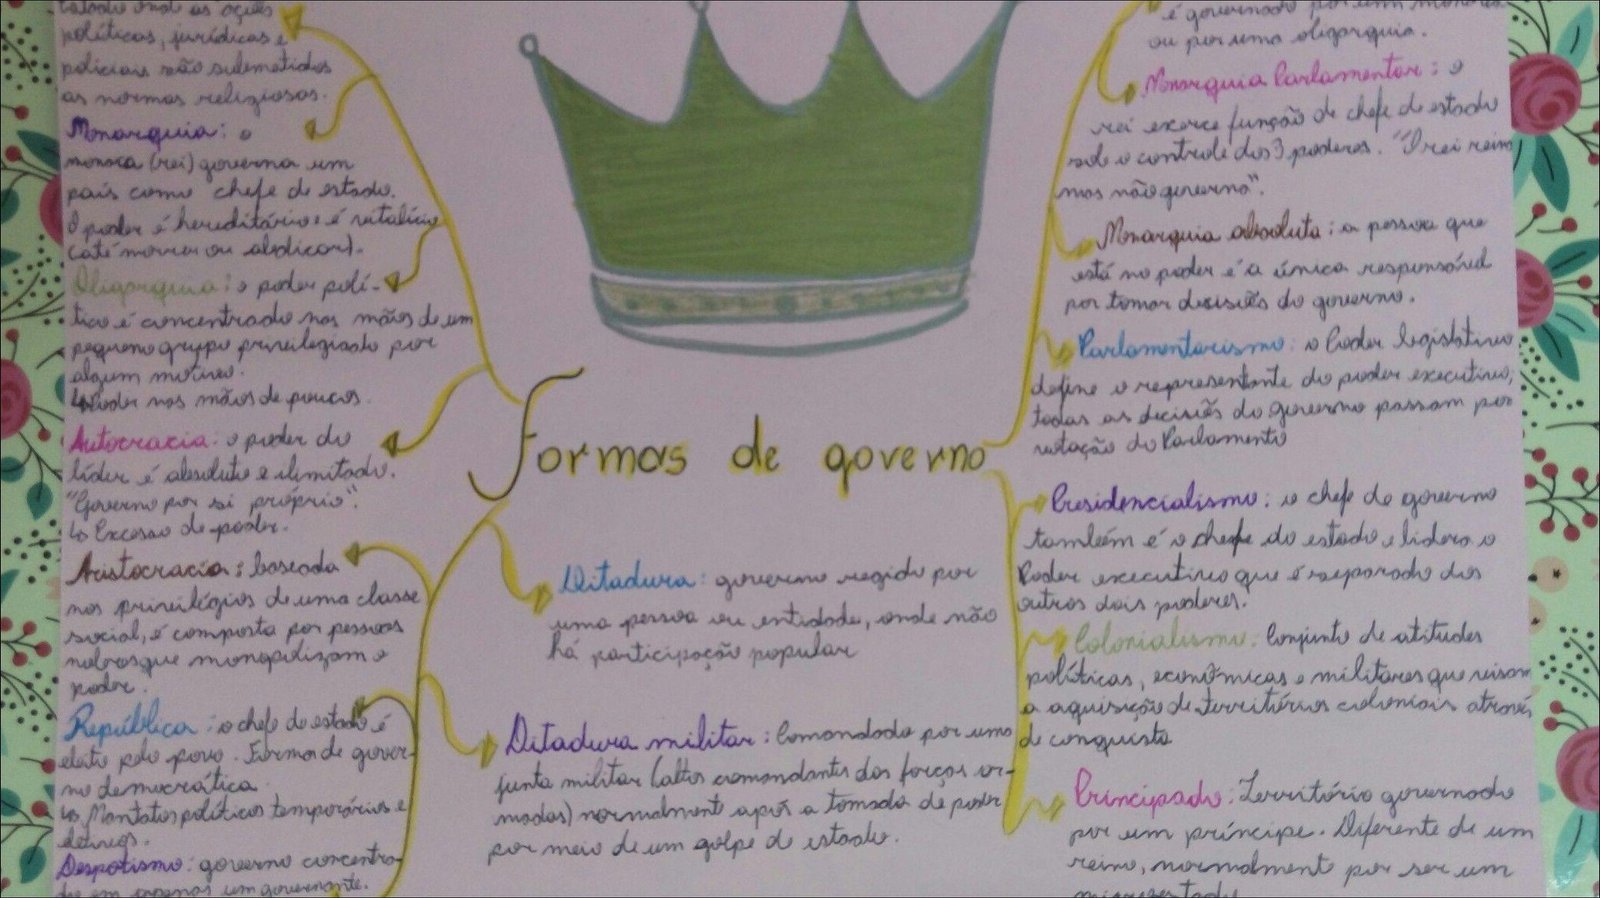 políticas, jurídicas e
policiais são submetidas
as normas religiosas.
Monarquia: o
monaca (rei) governa um
país como chefe de estado.
O poder é hereditário e é vitalício
(até morrer ou abdicar).
Oligarquia: o poder polí-
tico é concentrado nas mãos de um
pequeno grupo privilegiado por
algum motivo.
↳ Poder nas mãos de poucos.
Autocracia: o poder do
líder é absoluto e ilimitado.
"Governo por si próprio".
↳ Excesso de poder.
Aristocracia: baseada
nos privilégios de uma classe
social, é composta por pessoas
nobres que monopolizam o
poder.
República: o chefe do estado é
eleito pelo povo. Forma de gover-
no democrática.
↳ Mantatos políticos temporários e
Despotismo: governo concentra-
do em apenas um governante.
Formas de governo
Ditadura: governo regido por
uma pessoa ou entidade, onde não
há participação popular
Ditadura militar: Comandada por uma
junta militar (altos comandantes das forças ar-
madas) normalmente após a tomada de poder
por meio de um golpe de estado.
é governado por um monarca
ou por uma oligarquia.
Monarquia Parlamentar: o
rei exerce função de chefe de estado
sob o controle dos 3 poderes. "O rei reina
mas não governa".
Monarquia absoluta: a pessoa que
está no poder é a única responsável
por tomar decisões do governo.
Parlamentarismo: o Poder legislativo
define o representante do poder executivo;
todas as decisões do governo passam por
votação do Parlamento
Presidencialismo: o chefe de governo
também é o chefe do estado e lidera o
Poder executivo que é separado dos
outros dois poderes.
Colonialismo: Conjunto de atitudes
políticas, econômicas e militares que visam
a aquisição de territórios coloniais através
de conquista
Principado: Território governado
por um príncipe. Diferente de um
reino, normalmente por ser um